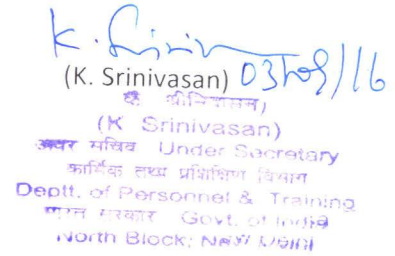 K. Srinivasan
(K. Srinivasan) 03/05/16
के श्रीनिवासन)
(K Srinivasan)
अवर सचिव Under Secretary
कार्मिक तथा प्रशिक्षण विभाग
Deptt. of Personnel & Training
भारत सरकार Govt. of India
North Block, New Delhi